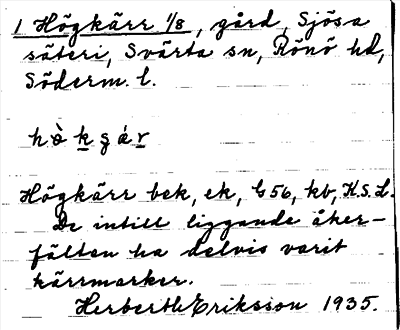 1 Högkärr 1/8, gård, Sjösa
säteri, Svärta sn, Rönö hd,
Söderm. l.
hö̀kɡár
Högkärr bek, ek, G56, kb, K.S.L.
De intill liggande åker-
fälten ha delvis varit
kärrmarker.
Herberth Eriksson 1935.